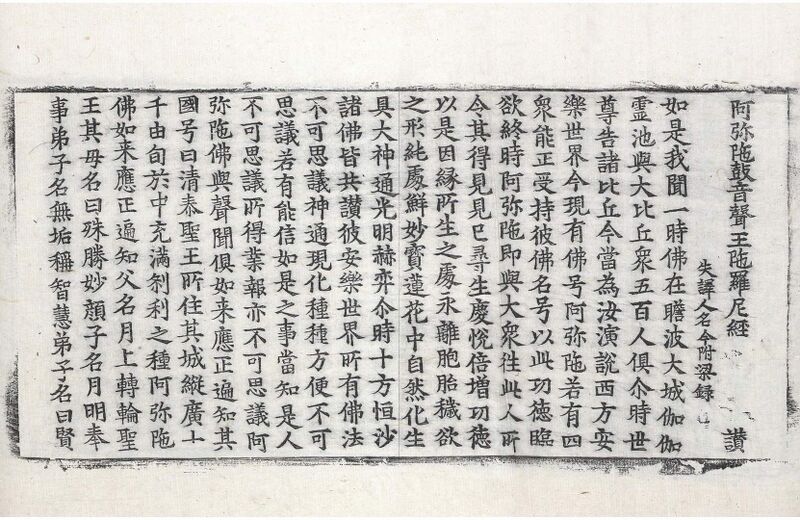 阿弥陁鼓音聲王陁羅尼經 讃
失譯人名今附梁錄
如是我聞一時佛在瞻波大城伽伽
霊池與大比丘衆五百人俱尒時世
尊告諸比丘今當為汝演說西方安
樂世界今現有佛号阿弥陁若有四
衆能正受持彼佛名号以此功德臨
欲終時阿弥陁即與大衆徃此人所
令其得見見已尋生慶悅倍增功德
以是因緣所生之處永離胞胎穢欲
之形純處鮮妙寳蓮花中自然化生
具大神通光明赫弈尒時十方恒沙
諸佛皆共讃彼安樂世界所有佛法
不可思議神通現化種種方便不可
思議若有能信如是之事當知是人
不可思議所得業報亦不可思議阿
弥陁佛與聲聞俱如来應正遍知其
國号曰清泰聖王所住其城縱廣十
千由旬於中充滿刹利之種阿弥陁
佛如来應正遍知父名月上轉輪聖
王其母名曰殊勝妙顔子名月明奉
事弟子名無垢稱智慧弟子名曰賢